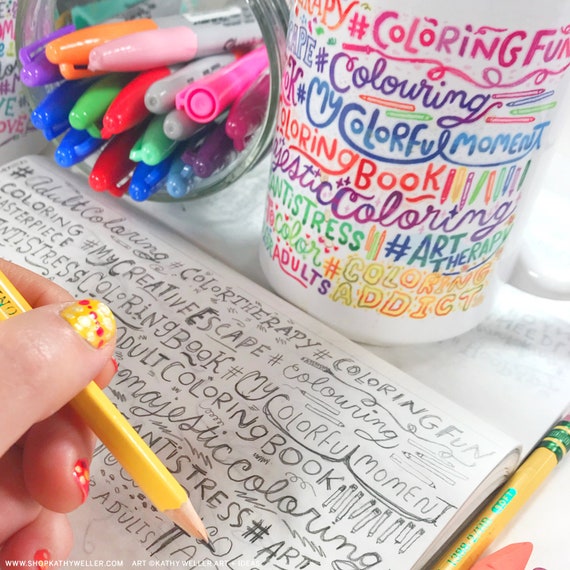 THERAPY #COLORINGFUN
#Colouring
#MYCOLORFULMOMENT
COLORINGBOOK
majesticColoring
ANTISTRESS #ART
THERAPY
Color #COLORING
ADULTS ADDICT
#AdultColoring
COLORING #COLORTHERAPY #COLORINGFUN
MASTERPIECE #MYCREATIVEESCAPE #Colouring
ANTISTRESSCOLORINGBOOK #MYCOLORFUL MOMENT
ADULTCOLORINGBOOK COLORINGBOOK
#majesticColoring
ANTISTRESS #ART
ADULTS
WWW.SHOPKATHYWELLER.COM ART ©KATHY WELLER ART + IDEAS